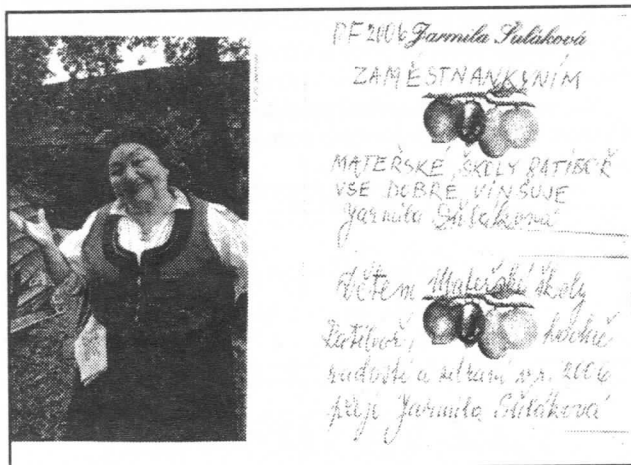 PF 2006 Jarmila Šuláková
ZAMĚSTNANKYNÍM
MATEŘSKÉ ŠKOLY RATIBOŘ
VŠE DOBRÉ VINŠUJE
Jarmila Šuláková
Dětem Mateřské školy
Ratiboř, hodně
radosti a zdraví v r. 2006
přeje Jarmila Šuláková